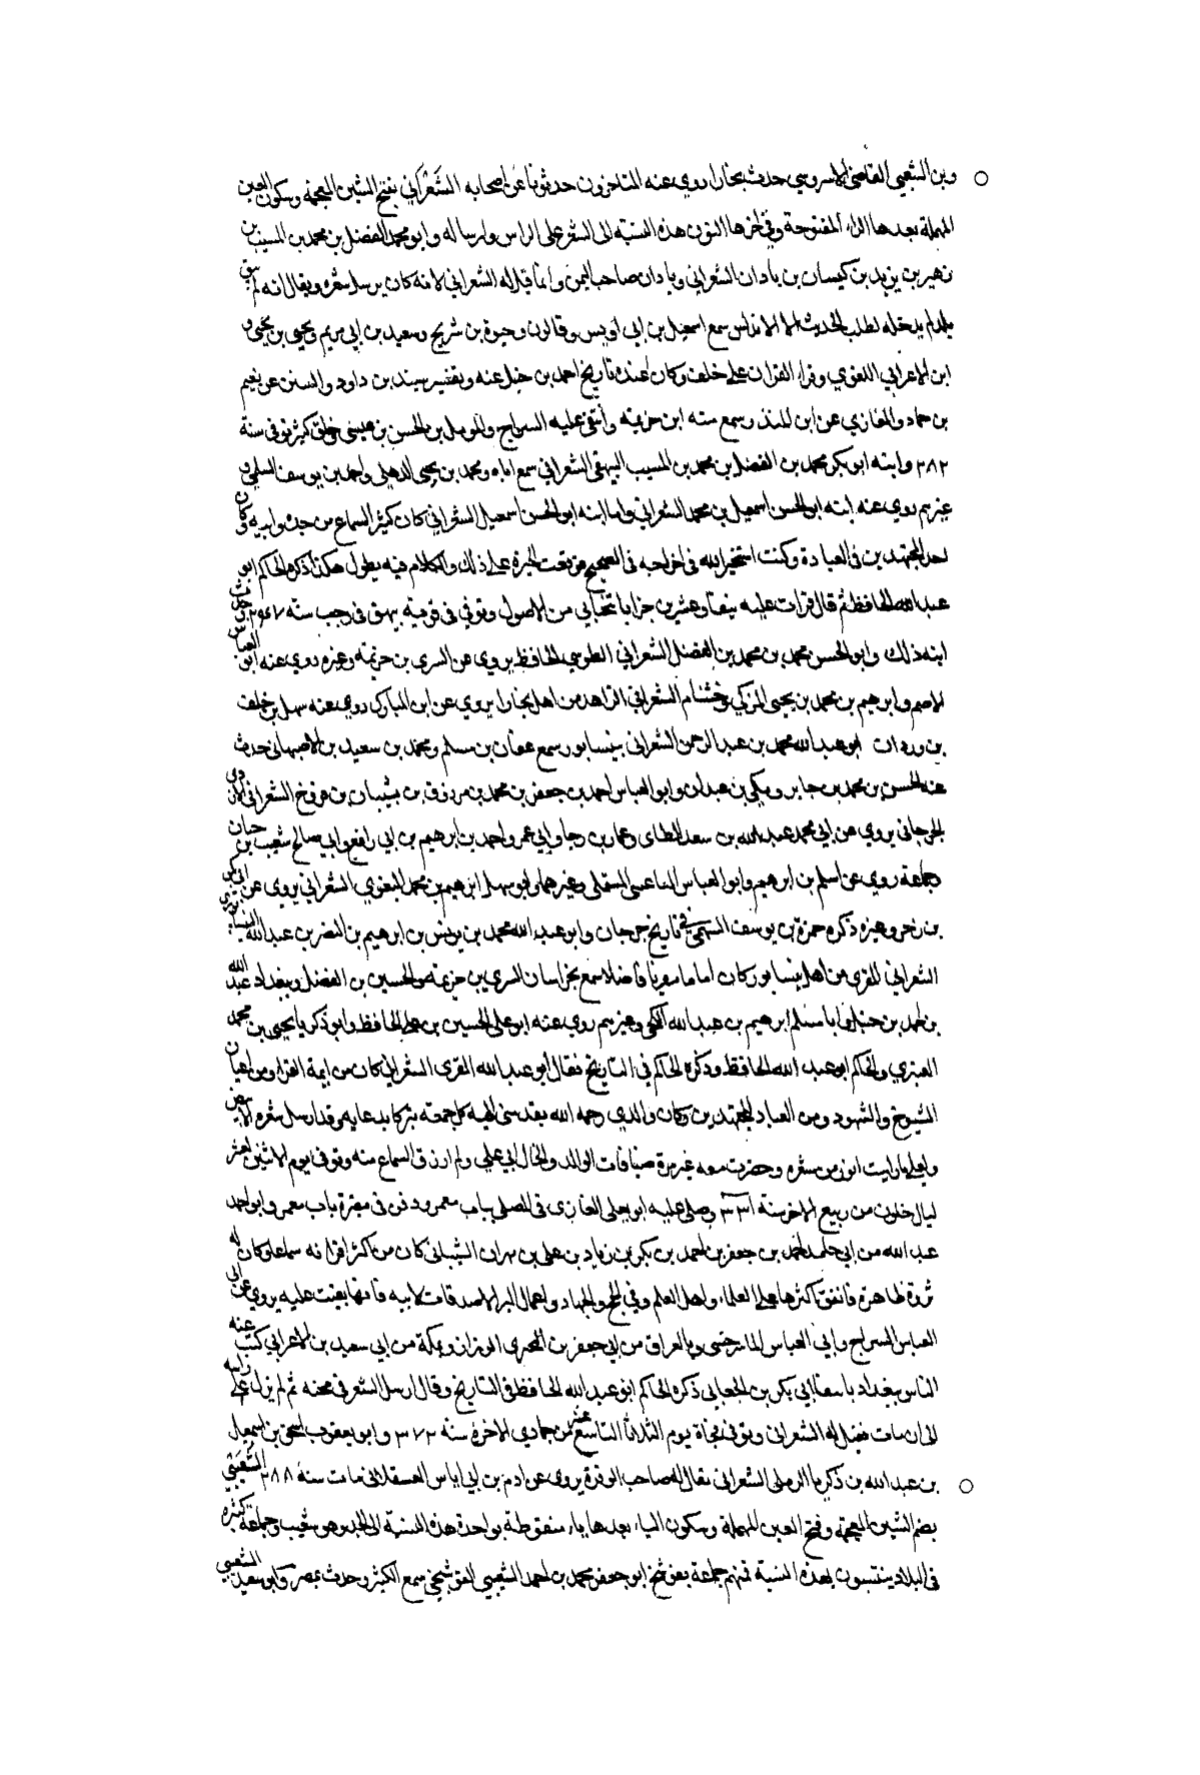 وبن الشعبي القاضي الاسروسي حدث ببخارا روي عنه المتاخرون حدثونا عن اصحابه الشَعْرَاني بفتح الشين المعجمة وسكون العين
المهملة بعدها الراء المفتوحة وفي اخرها النون هذه النسبة الى الشعر على الراس وارساله وابو محمد الفضل بن محمد بن المسيب بن
زهير بن يزيد بن كيسان بن باذان الشعراني وباذان صاحب اليمن وانما قيل له الشعراني لانه كان يرسل شعره ويقال انه لم يبق
بلد لم يدخله لطلب الحديث الا الاندلس سمع اسمعيل بن ابي اويس وقالون وحيوة بن شريح وسعيد بن ابي مريم ويحيى بن يحيى و
ابن الاعرابي اللغوي وقرا القران على خلف وكان عنده تاريخ احمد بن حنبل عنه وتفسير سنيد بن داود والسنن عن نعيم
بن حماد والمغازي عن ابن المنذر وسمع منه ابن خزيمة وانتقى عليه السراج والمومل بن الحسن بن عيسى وخلق كثير توفي سنة
٢٨٢ وابنه ابو بكر محمد بن الفضل بن محمد بن المسيب البيهقي الشعراني سمع اباه ومحمد بن يحيى الذهلي واحمد بن يوسف السلمي و
غيرهم روي عنه ابنه ابو الحسن اسمعيل بن محمد الشعراني واما ابنه ابو الحسن اسمعيل الشعراني كان كثير السماع من جده وابيه وكان
احد المجتهدين في العبادة وكنت استخير الله في اخراجه في الصحيح فوقعت الخيرة على ذلك والكلام فيه يطول هكذا ذكره الحاكم ابو
عبد الله الحافظ ثم قال قرات عليه نيفا وعشرين جزا بانتخابي من الاصول وتوفي في قريته بيهق في رجب سنة ٣٤٧
ابنه ذلك وابو الحسن محمد بن محمد بن الفضل الشعراني الطوسي الحافظ يروي عن السري بن خزيمة وغيره روي عنه ابو العباس
الاصم وابرهيم بن محمد بن يحيى المزكي وخشنام الشعراني الزاهد من اهل بخارا يروي عن ابن المبارك روي عنه سهل بن خلف
بن وردان ابو عبد الله محمد بن عبد الرحمن الشعراني بنيسابور سمع عفان بن مسلم ومحمد بن سعيد بن الاصبهاني حدث
عنه الحسن بن محمد بن جابر ومكي بن عبدان وابو العباس احمد بن جعفر بن محمد بن مرزوق بن شيبان بن فروخ الشعراني
الجرجاني يروي عن ابي محمد عبد الله بن سعد الطاي وعمار بن رجا وابي عمرو احمد بن ابرهيم بن ابي رافع وابي صالح شعيب بن حبان
وجماعة روي عن اسلم بن ابرهيم وابو العباس وغيرهما وابو سهل ابرهيم بن محمد البغوي الشعراني يروي عن ابي بكر
بن وغيره ذكره حمزة بن يوسف السهمي في تاريخ جرجان وابو عبد الله محمد بن يونس بن ابرهيم بن النضر بن عبد الله النيسابوري
الشعراني المقري من اهل نيسابور كان اماما مقريا فاضلا سمع بخراسان السري بن خزيمة والحسين بن الفضل وببغداد عبد الله
بن احمد بن حنبل وابا مسلم ابرهيم بن عبد الله الكجي وغيرهم روي عنه ابو علي الحسين بن علي الحافظ وابو زكريا يحيى بن محمد
العنبري والحاكم ابو عبد الله الحافظ وذكره الحاكم في التاريخ فقال ابو عبد الله المقري الشعراني كان من ايمة القرا ومن اعيان
الشيوخ والشهود ومن العباد المجتهدين وكان والدي رحمه الله يقدمني اليه كل جمعة تبركا بدعايه وقد ارسل شعره الابيض
وقلما رايت انور من شعره وحضرت معه غير مرة ضيافات الوالد والخال ابي علي ولم ارزق السماع منه وتوفي يوم الاثنين لعشر
ليال خلون من ربيع الاخر سنة ٣٣١ وصلى عليه ابو يعلى الغازي في المصلى بباب معمر ودفن في مقبرة باب معمر وابو احمد
عبد الله من ابي حامد احمد بن جعفر بن احمد بن بكر بن زياد بن علي بن مهران الشيباني كان من اكثر اقرانه سماعا وكان له
ثروة ظاهرة فانفق اكثرها على العلماء واهل العلم وفي الحج والجهاد واعمال البر الا صدقات لابيه فانها بقيت عليه يروي عن ابي
العباس السراج وابي العباس الماسرجسي وبالعراق من ابي جعفر بن البحتري الوزان وبمكة من ابي سعيد بن الاعرابي كتب عنه
الناس ببغداد بافادة ابي بكر بن الجعابي ذكره الحاكم ابو عبد الله الحافظ في التاريخ وقال ارسل الشعر في محنه ثم لم يزل على راسه
الى ان مات فقيل له الشعراني وتوفي فجاة يوم الثلاثا التاسع عشر من جمادي الاخرة سنة ٣٧٢ وابو يعقوب اسحق بن اسمعيل
بن عبد الله بن زكريا الرملي الشعراني يقال له صاحب الوفرة يروي عن ادم بن ابي اياس العسقلاني مات سنة ٢٨٨ الشُّعَيْبي
بضم الشين المعجمة وفتح العين المهملة وسكون الياء بعدها باء منقوطة بواحدة هذه النسبة الى الجد وهو شعيب وجماعة كثيرة
في البلاد ينتسبون بهذه النسبة فمنهم جماعة بفوشنج ابو جعفر محمد بن احمد الشعيبي الفوشنجي سمع الكثير وحدث بمصر وابو سعيد الشعيبي